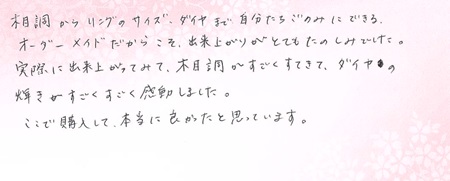 木目調からリングのサイズ、ダイヤまで自分たちごのみにできる、
オーダーメイドだからこそ、出来上がりがとてもたのしみでした。
実際に出来上がってみて、木目調がすごくすてきで、ダイヤの
輝きがすごくすごく感動しました。
ここで購入して、本当に良かったと思っています。